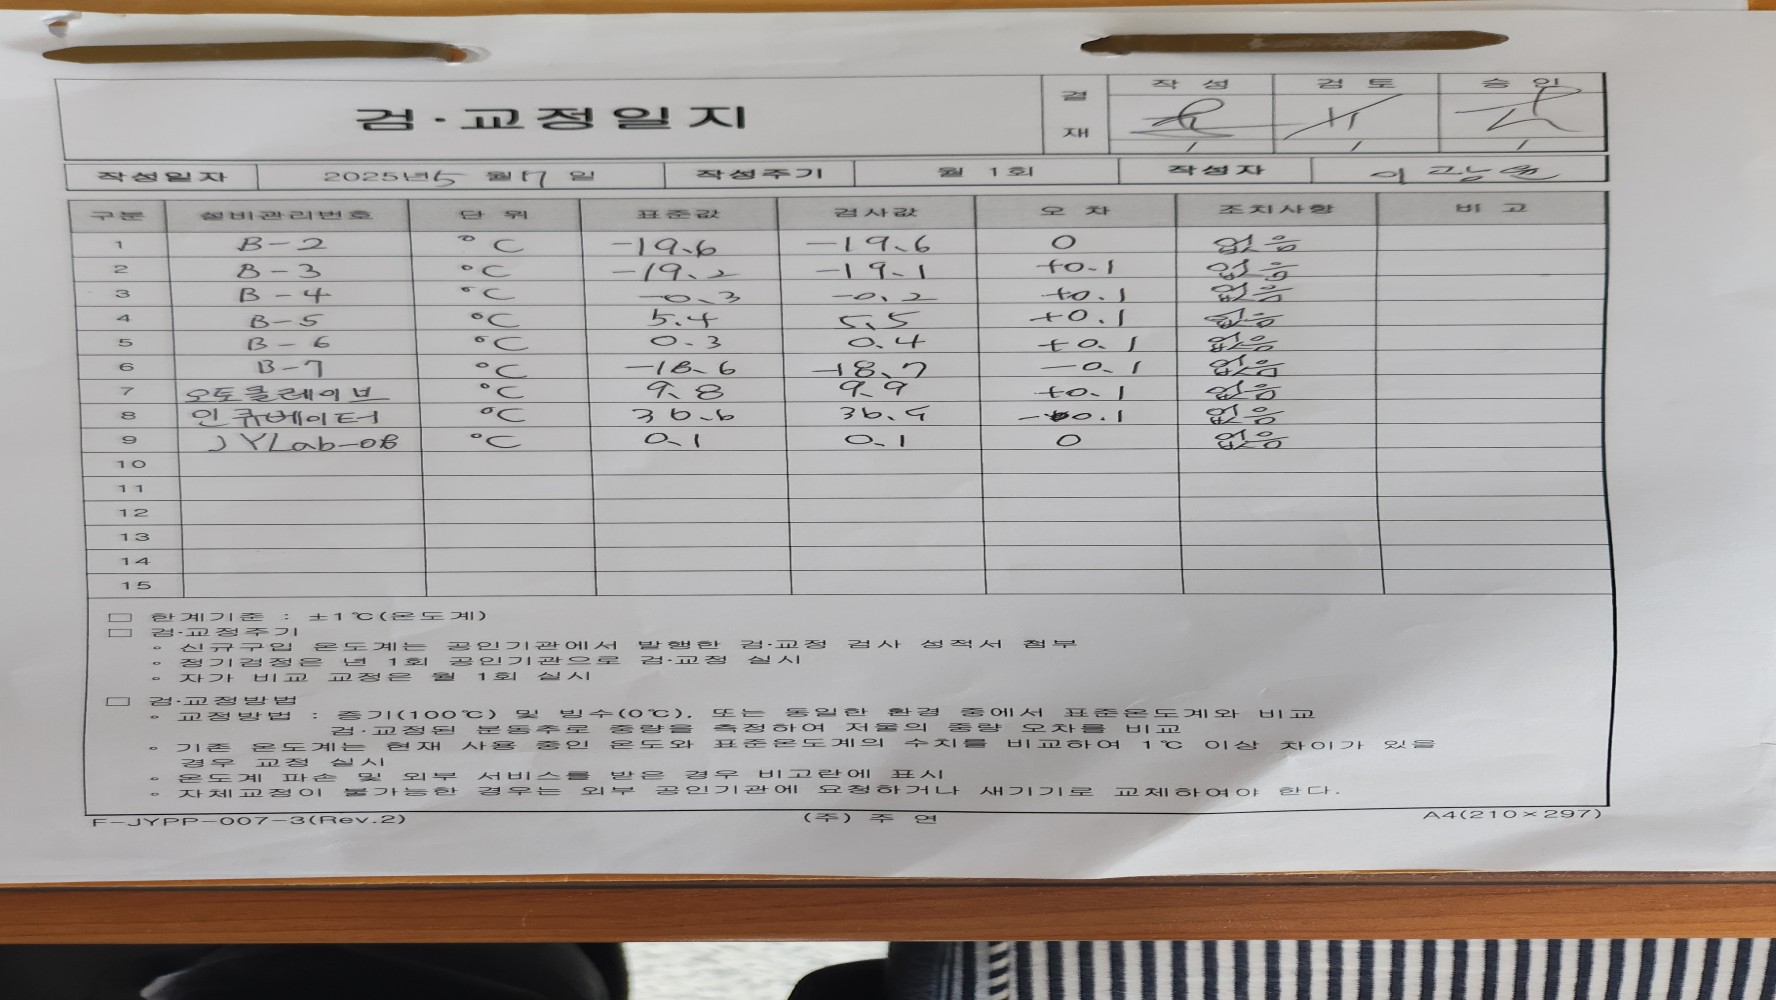 검·교정일지
결재 작 성 검 토 승 인
작성일자 2025년 5 월 17 일 작성주기 월 1회 작성자 이
구분 설비관리번호 단 위 표준값 검사값 오 차 조치사항 비 고
1 B-2 °C -19.6 -19.6 0 없음
2 B-3 °C -19.2 -19.1 +0.1 없음
3 B-4 °C -0.3 -0.2 +0.1 없음
4 B-5 °C 5.4 5.5 +0.1 없음
5 B-6 °C 0.3 0.4 +0.1 없음
6 B-7 °C -18.6 -18.7 -0.1 없음
7 오토클레이브 °C 9.8 9.9 +0.1 없음
8 인큐베이터 °C 36.6 36.5 -0.1 없음
9 JYLab-08 °C 0.1 0.1 0 없음
10
11
12
13
14
15
□ 한계기준 : ±1℃(온도계)
□ 검·교정주기
◦ 신규구입 온도계는 공인기관에서 발행한 검·교정 검사 성적서 첨부
◦ 정기검정은 년 1회 공인기관으로 검·교정 실시
◦ 자가 비교 교정은 월 1회 실시
□ 검·교정방법
◦ 교정방법 : 증기(100℃) 및 빙수(0℃), 또는 동일한 환경 중에서 표준온도계와 비교
검·교정된 분동추로 중량을 측정하여 저울의 중량 오차를 비교
◦ 기존 온도계는 현재 사용 중인 온도와 표준온도계의 수치를 비교하여 1℃ 이상 차이가 있을
경우 교정 실시
◦ 온도계 파손 및 외부 서비스를 받은 경우 비고란에 표시
◦ 자체교정이 불가능한 경우는 외부 공인기관에 요청하거나 새기기로 교체하여야 한다.
F-JYPP-007-3(Rev.2) (주) 주 연 A4(210×297)